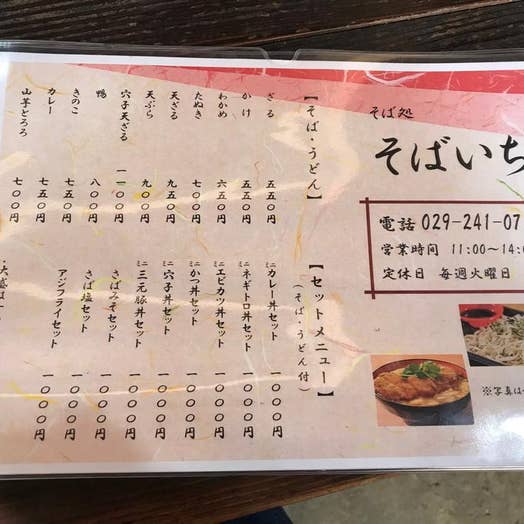 そば処
そばいち
電話 029-241-07
営業時間 11:00~14:0
定休日 毎週火曜日
※写真は
【そば・うどん】
ざる 五五〇円
かけ 五五〇円
わかめ 六五〇円
たぬき 五五〇円
天ざる 九五〇円
天ぷら 九〇〇円
穴子天ざる 一一〇〇円
鴨 八〇〇円
きのこ 七五〇円
カレー 七五〇円
山芋とろろ 七〇〇円
【セットメニュー】
(そば・うどん付)
ミニカレー丼セット 一〇〇〇円
ミニネギトロ丼セット 一〇〇〇円
ミニエビカツ丼セット 一〇〇〇円
ミニかつ丼セット 一〇〇〇円
ミニ穴子丼セット 一〇〇〇円
ミニ三元豚丼セット 一〇〇〇円
さばみそセット 一〇〇〇円
さば塩セット 一〇〇〇円
アジフライセット 一〇〇〇円
・大盛は